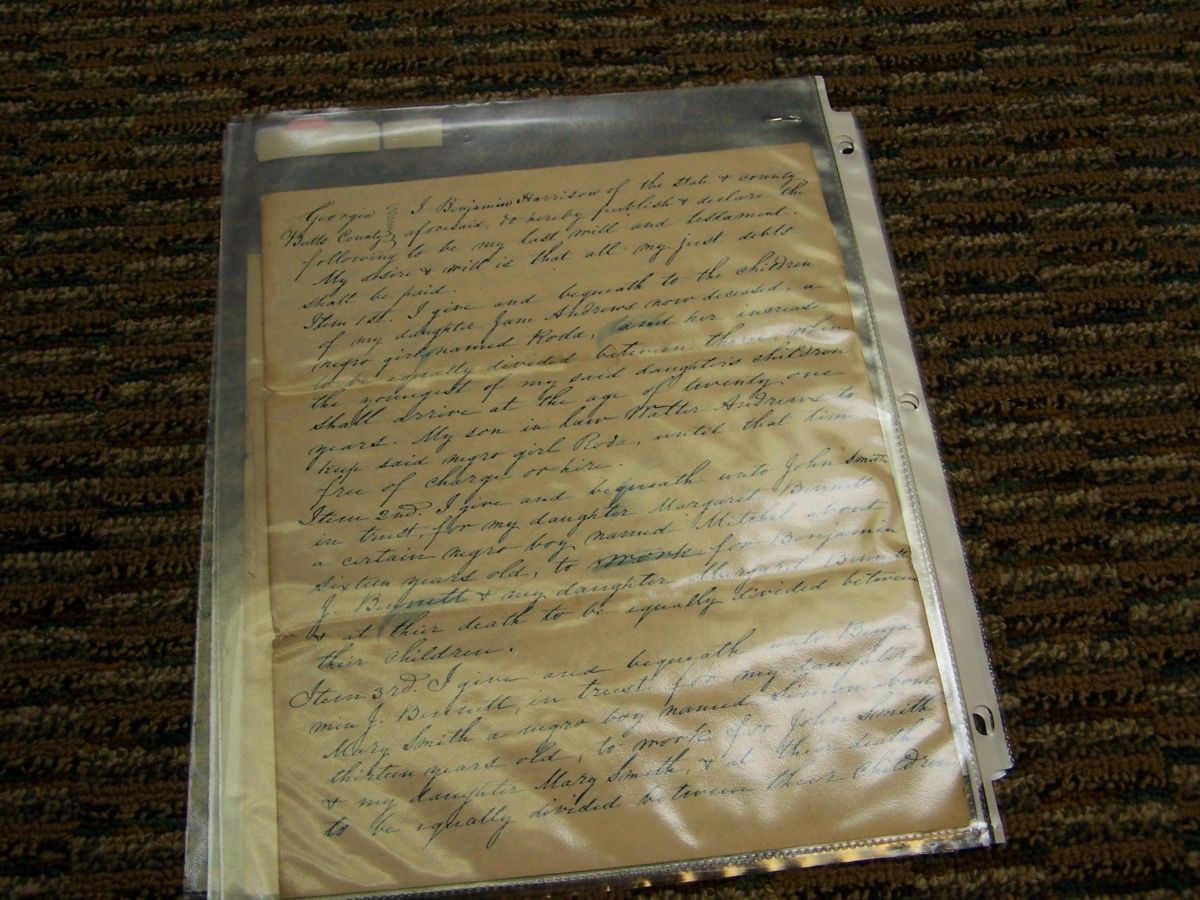 Georgia } I Benjamin Harrison of the state & county
Butts County } aforesaid, do hereby publish & declare the
following to be my last will and testament.
My desire & will is that all my just debts
shall be paid.
Item 1st. I give and bequeath to the children
of my daughter Jane Andrews now deceased, a
negro girl named Roda, and her increase
to be equally divided between them, when
the youngest of my said daughter's children
shall arrive at the age of twenty one
years. My son in law Walter Andrews to
keep said negro girl Roda, until that time
free of charge or hire.
Item 2nd. I give and bequeath unto John Smith
in trust, for my daughter Margaret Bennett
a certain negro boy named Mitchel about
sixteen years old, to work for Benjamin
J. Bennett & my daughter Margaret Bennett
& at thier death to be equally divided between
thier children.
Item 3rd. I give and bequeath unto Benja
min J. Bennett, in trust for my daughter
Mary Smith a negro boy named Simon about
thirteen years old, to work for John Smith
& my daughter Mary Smith, & at their death
to be equally divided between their children